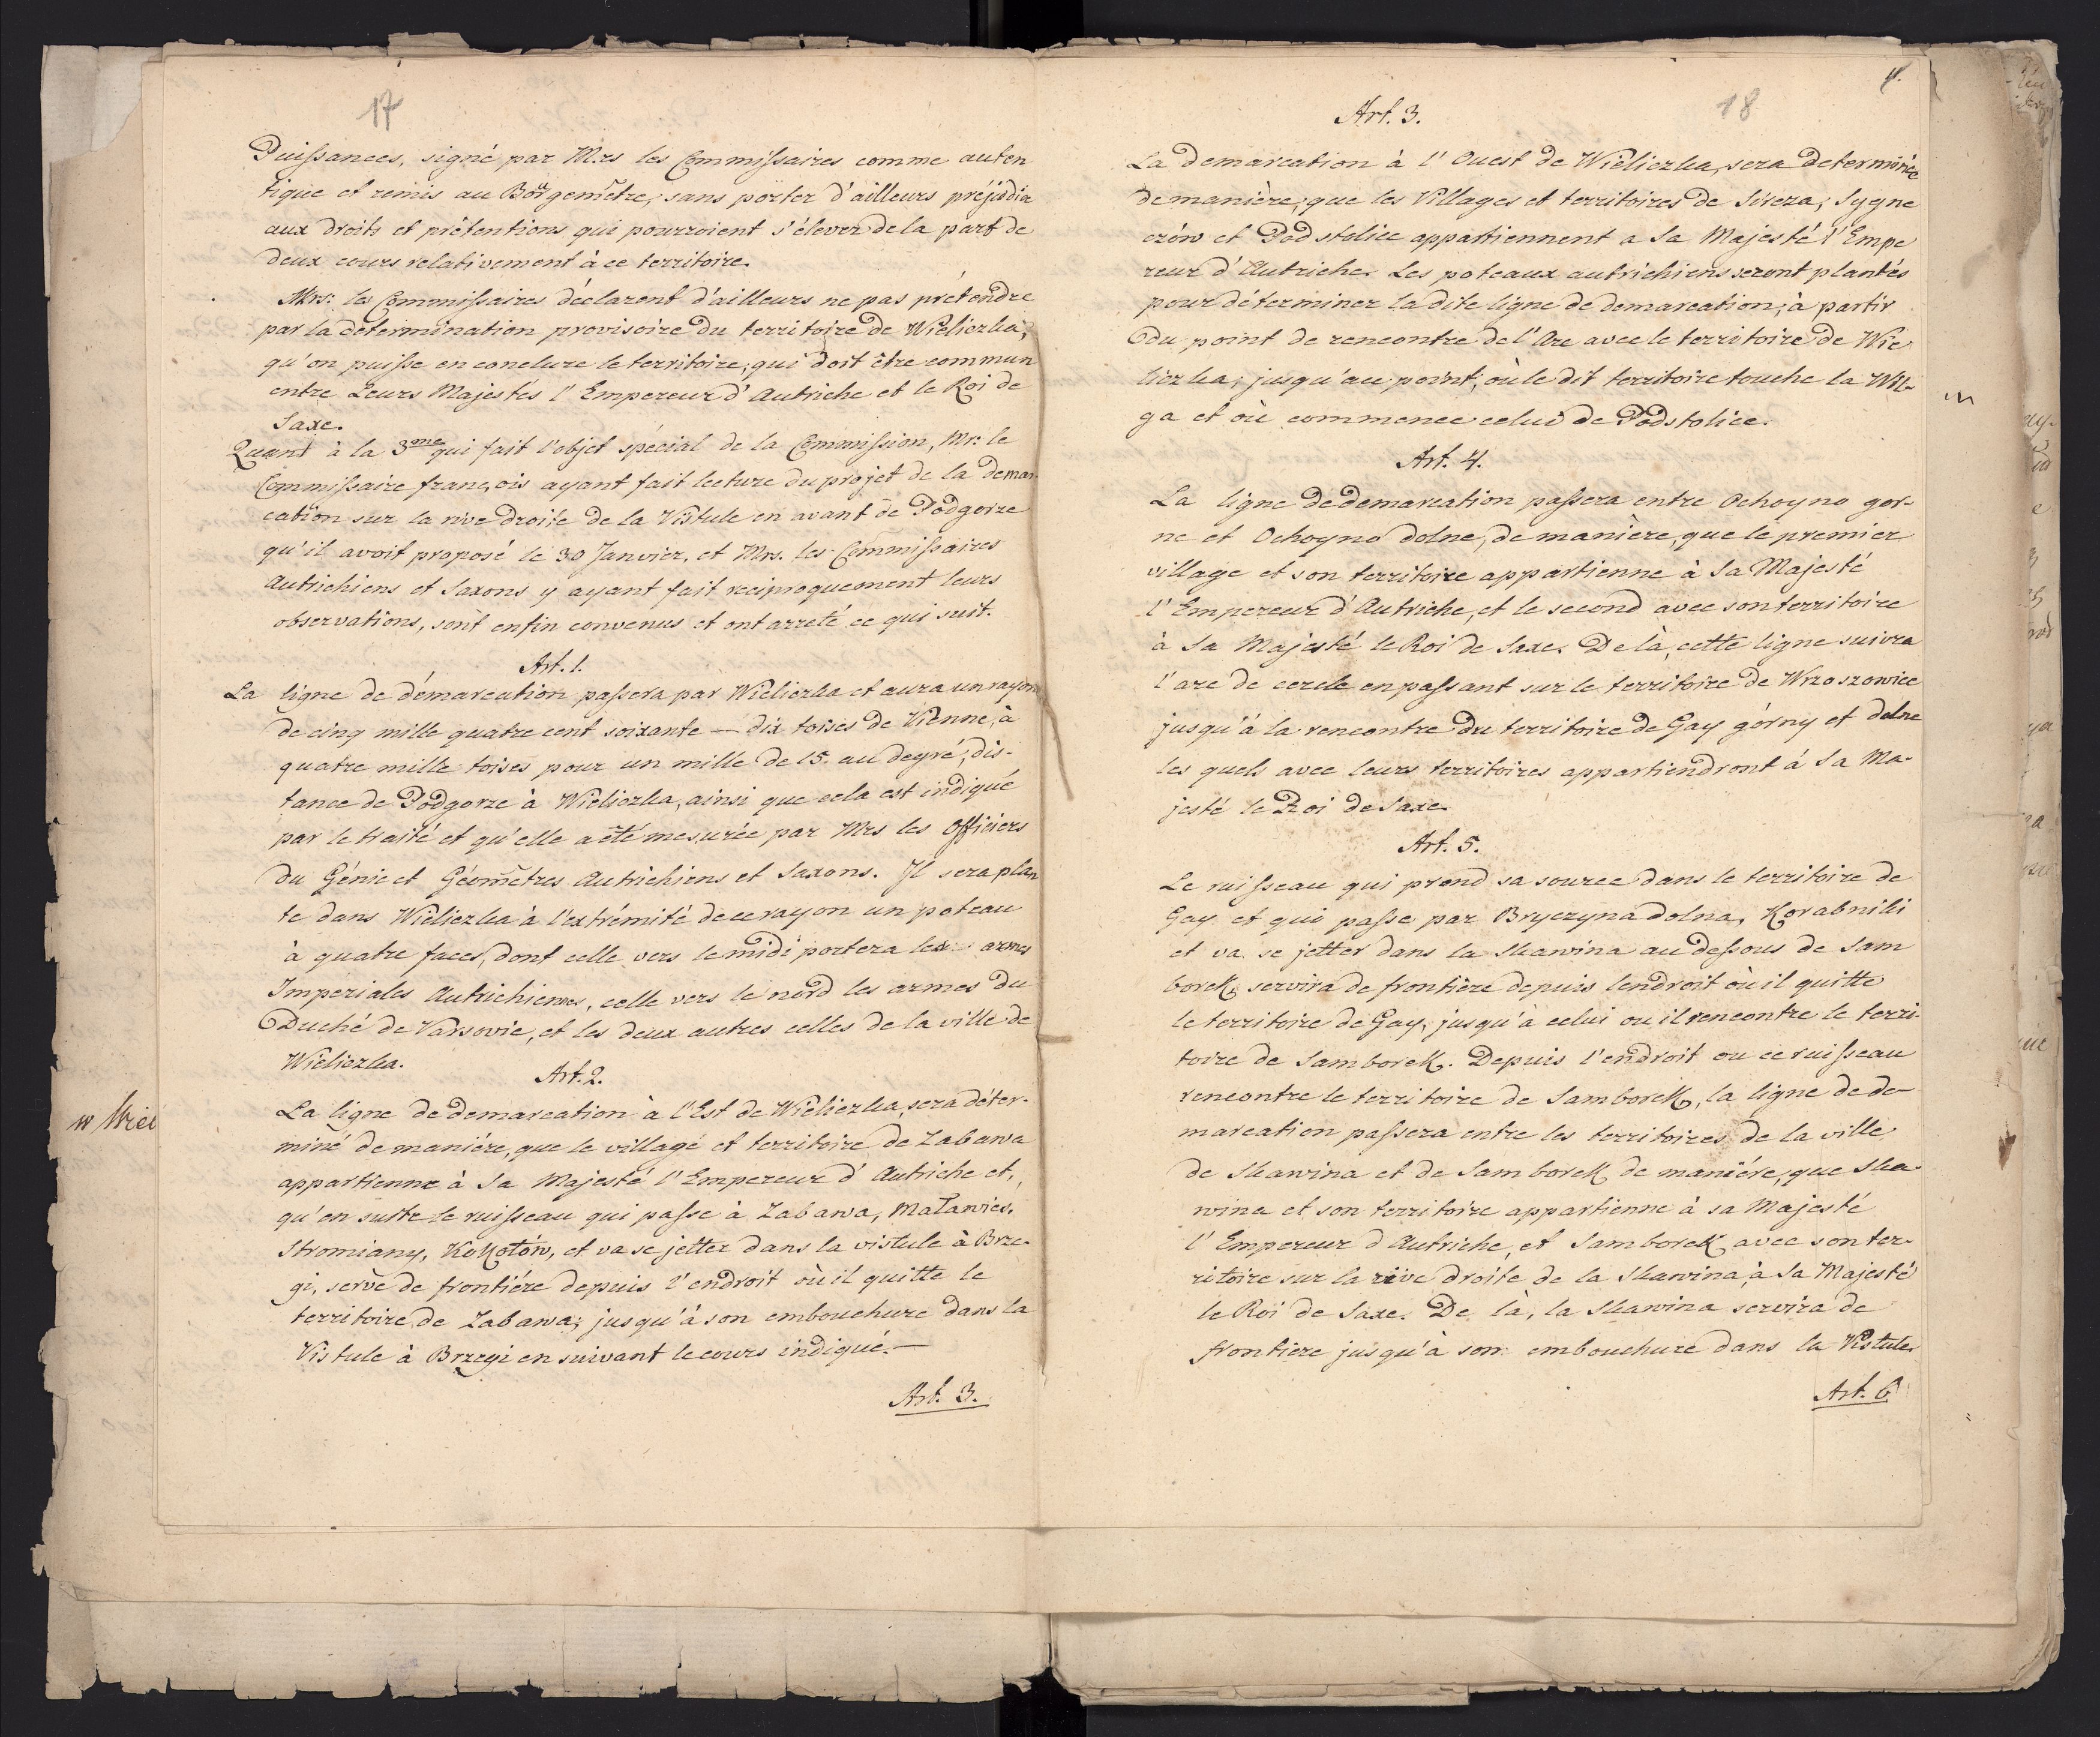 17
Puissances, signé par M.rs les Commissaires comme auten
tique et remis au Börgemêtre; sans porter d'ailleurs préjudice
aux droits et prétentions qui pourroient s'élever de la part de
deux cours relativement à ce territoire.
Mrs: les Commissaires déclarent d'ailleurs ne pas prétendre
par la determination provisoire du territoire de Wieliczka,
qu'on puisse en conclure le territoire, qui doit être commun
entre Leurs Majestés l'Empereur d'Autriche et le Roi de
Saxe.
Quant à la 3me qui fait l'objet spécial de la Commission, Mr: le
Commissaire françois ayant fait lecture du projet de la demar-
cation sur la rive droite de la Vistule en avant de Podgorze
qu'il avoit proposé le 30 Janvier, et Mrs. les Commissaires
Autrichiens et Saxons y ayant fait reciproquement leurs
observations, sont enfin convenus et ont arreté ce qui suit.
Art. 1.
La ligne de démarcation passera par Wieliczka et aura un rayon
de cinq mille quatre cent soixante — dix toises de Vienne, à
quatre mille toises pour un mille de 15. au degré, dis-
tance de Podgorze à Wieliczka, ainsi que cela est indiqué
par le traité et qu'elle a été mesurée par Mrs les Officiers
du Génie et Géometres Autrichiens et Saxons. Il sera plan
te dans Wieliczka à l'extrémité de ce rayon un poteau
à quatre faces, dont celle vers le midi portera les armes
Imperiales Autrichiennes, celle vers le nord les armes du
Duché de Varsovie, et les deux autres celles de la ville de
Wieliczka.
Art. 2.
La ligne de demarcation à l'Est de Wieliczka, sera déter-
miné de maniére, que le village et territoire de Zabawa
appartienne à Sa Majesté l'Empereur d'Autriche et,
qu'en suite le ruisseau qui passe à Zabawa, Maławies,
Stromiany, Kokotów, et va se jetter dans la vistule à Brze-
gi, serve de frontiére depuis l'endroit où il quitte le
territoire de Zabawa, jusqu'à son embouchure dans la
Vistule à Brzegi en suivant le cours indiqué. —
Art. 3.
w Wiel
18
4.
Art. 3.
La demarcation à l'Ouest de Wieliczka, sera determinée
de manière, que les Villages et territoires de Siercza, Sygne
czów et Podstolice appartiennent a Sa Majesté l'Empe
reur d'Autriche. Les poteaux autrichiens seront plantés
pour déterminer la dite ligne de demarcation, à partir
du point de rencontre de l'Arc avec le territoire de Wie
liczka, jusqu'au point, où le dit territoire touche la Wil-
ga et où commence celui de Podstolice.
Art. 4.
La ligne de demarcation passera entre Ochoyno gor-
ne et Ochoyno dolne, de manière, que le premier
village et son territoire appartienne à Sa Majesté
l'Empereur d'Autriche, et le second avec son territoire
à Sa Majesté le Roi de Saxe. De là, cette ligne suivra
l'arc de cercle en passant sur le territoire de Wrzoszowice
jusqu'à la rencontre du territoire de Gay górny et dolne
les quels avec leurs territoires appartiendront à Sa Ma-
jesté le Roi de Saxe.
Art. 5.
Le ruisseau qui prend sa source dans le territoire de
Gay et qui passe par Bryczyna dolna, Korabniki
et va se jetter dans la Skawina au dessous de Sam
borek, servira de frontière depuis lendroit où il quitte
le territoire de Gay, jusqu'à celui ou il rencontre le terri-
toire de Samborek. Depuis l'endroit ou ce ruisseau
rencontre le territoire de Samborek, la ligne de de-
marcation passera entre les territoires de la ville
de Skawina et de Samborek de maniére, que Ska-
wina et son territoire appartienne à sa Majesté
l'Empereur d Autriche, et Samborek avec son ter-
ritoire sur la rive droite de la Skawina à Sa Majesté
le Roi de Saxe. De là, la Skawina servira de
frontiere jusqu'à son embouchure dans la Vistule.
Art. 6